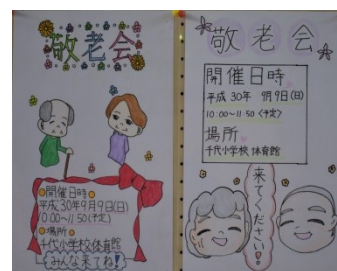 敬老会
開催日時
平成30年9月9日(日)
10:00~11:50(予定)
場所
千代小学校体育館
みんな来てね!
敬老会
開催日時
平成30年 9月9日(日)
10:00~11:50(予定)
場所
千代小学校 体育館
来てください!!